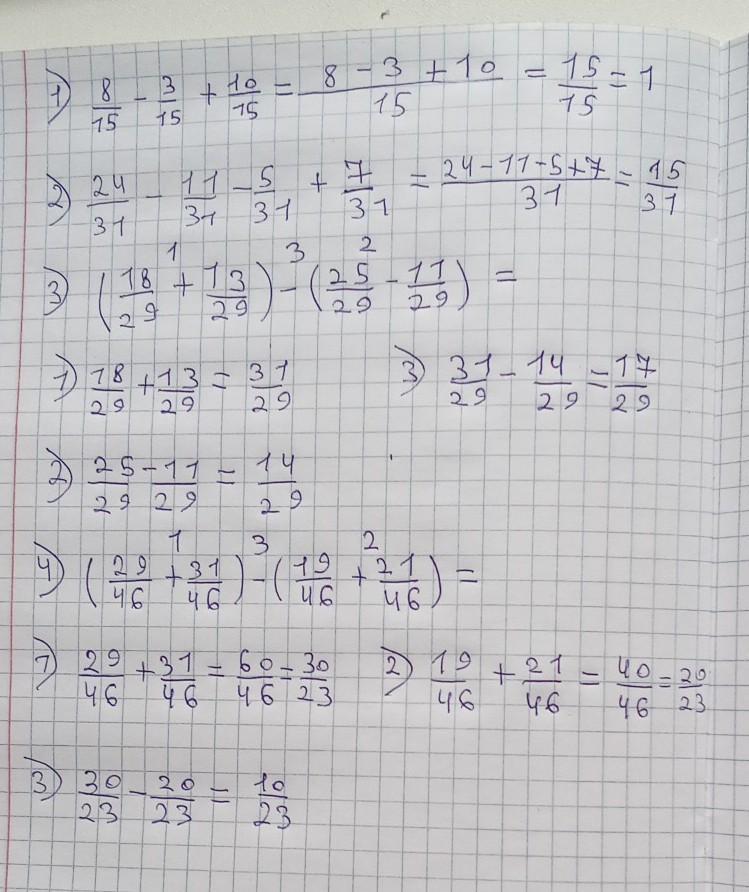 1) 8/15 - 3/15 + 10/15 = (8 - 3 + 10)/15 = 15/15 = 1
2) 24/31 - 11/31 - 5/31 + 7/31 = (24-11-5+7)/31 = 15/31
1 3 2
3) (18/29 + 13/29) - (25/29 - 11/29) =
1) 18/29 + 13/29 = 31/29 3) 31/29 - 14/29 = 17/29
2) 25/29 - 11/29 = 14/29
1 3 2
4) (29/46 + 31/46) - (19/46 + 21/46) =
1) 29/46 + 31/46 = 60/46 = 30/23 2) 19/46 + 21/46 = 40/46 = 20/23
3) 30/23 - 20/23 = 10/23